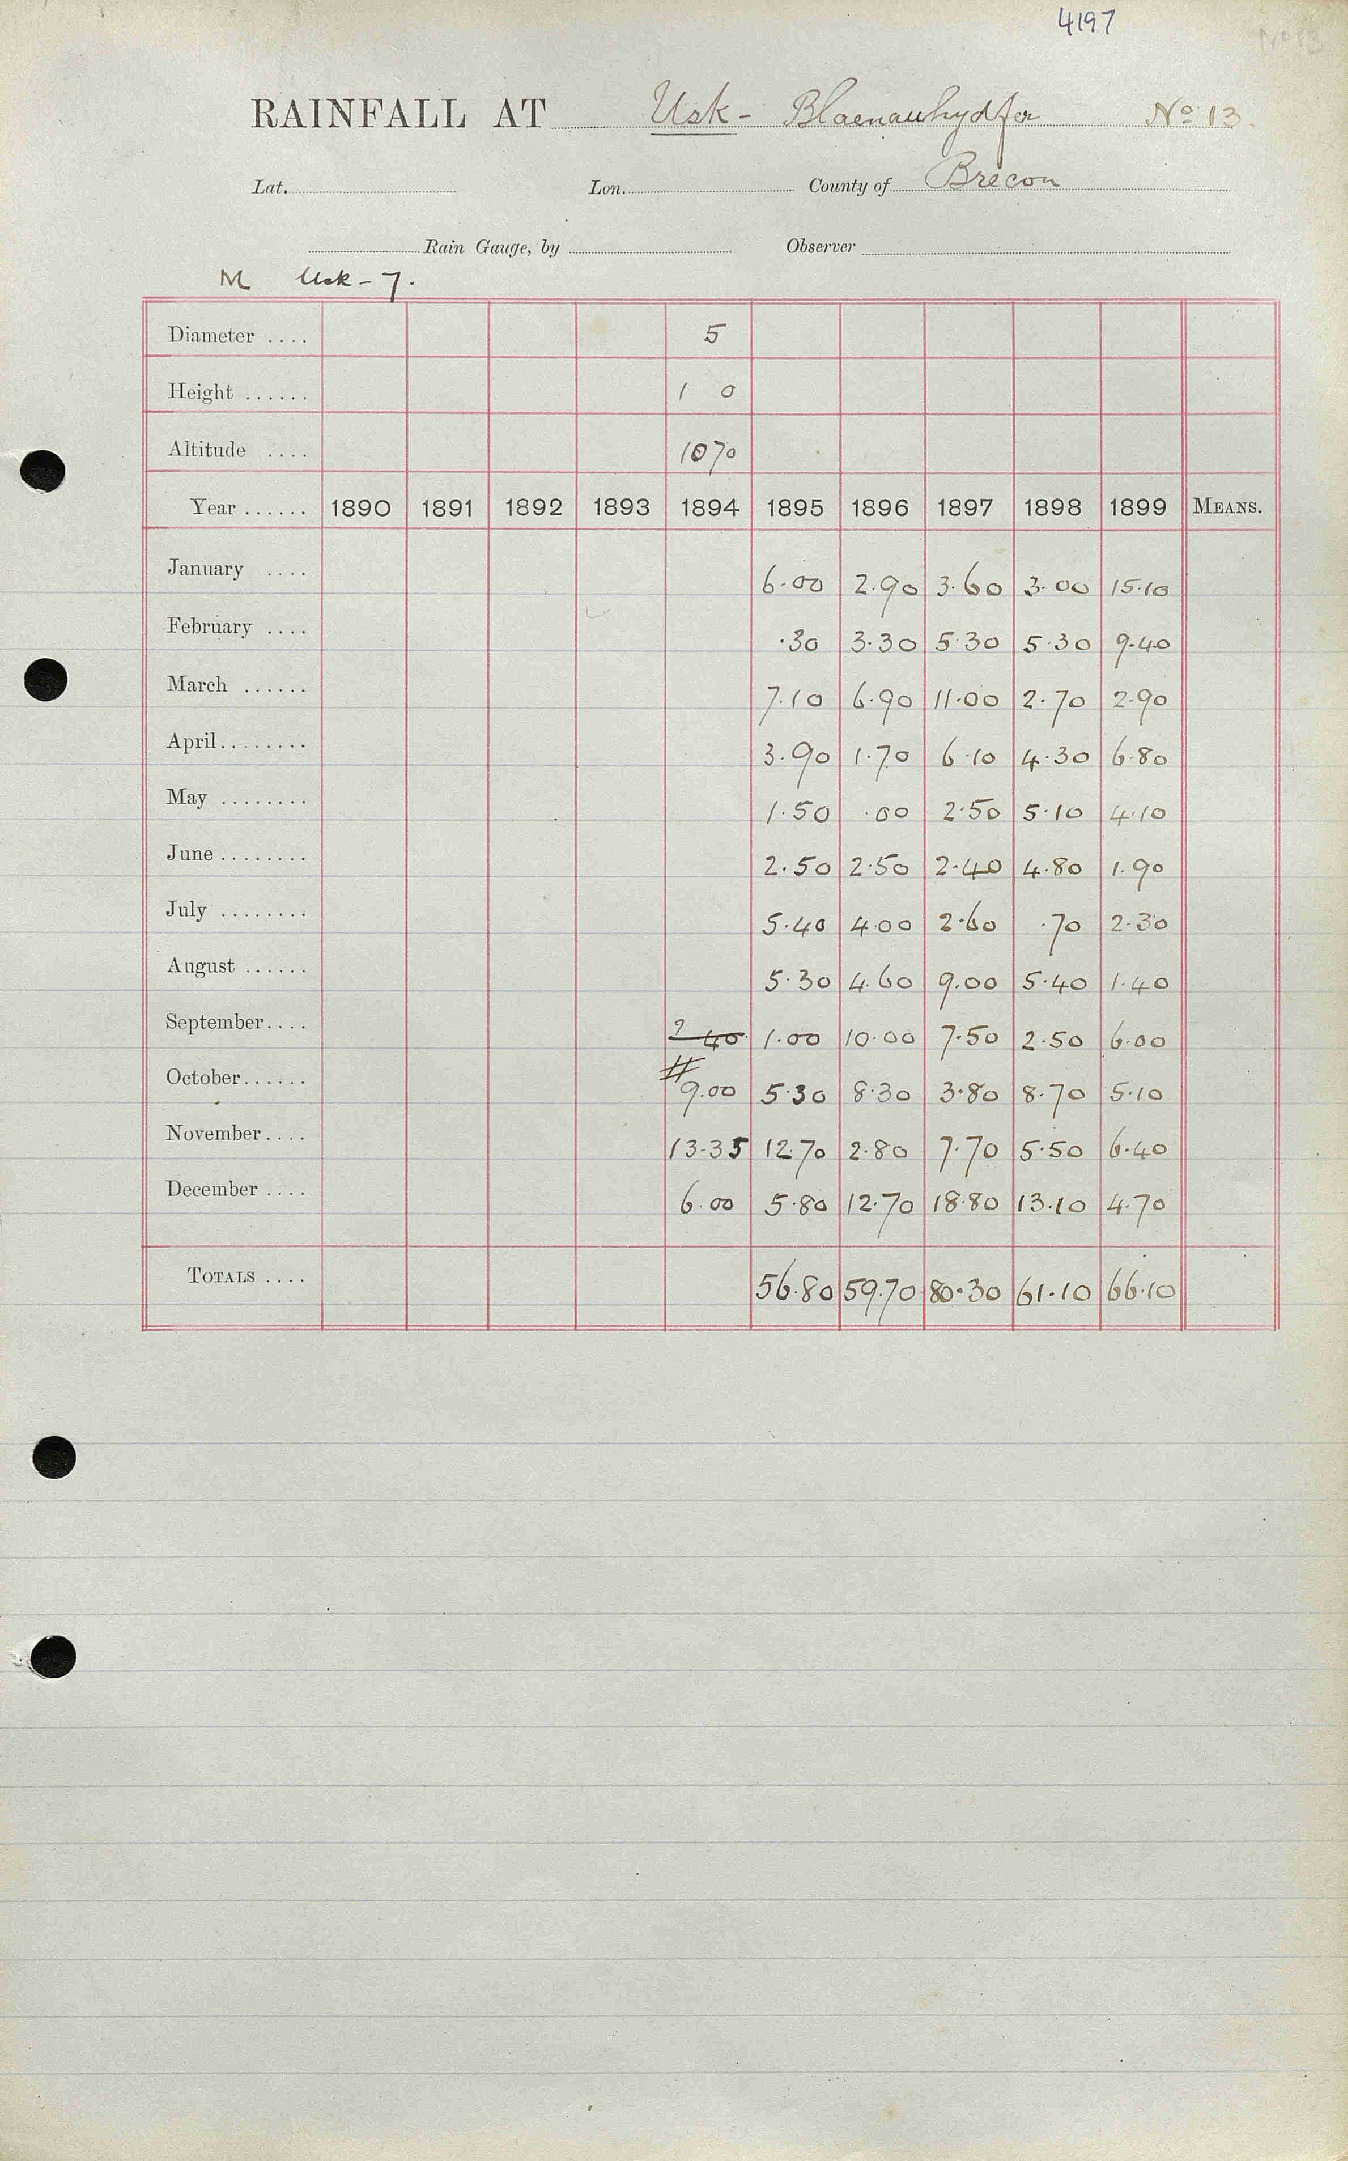 4197
No 13
RAINFALL AT Usk - Blaenauhydfer No 13.
Lat. Lon. County of Brecon
Rain Gauge, by Observer
M Usk - 7.
Diameter .... 5
Height ...... 1 0
Altitude .... 1070
Year ...... 1890 1891 1892 1893 1894 1895 1896 1897 1898 1899 MEANS.
January .... 6.00 2.90 3.60 3.00 15.10
February .... .30 3.30 5.30 5.30 9.40
March ...... 7.10 6.90 11.00 2.70 2.90
April........ 3.90 1.70 6.10 4.30 6.80
May ........ 1.50 .00 2.50 5.10 4.10
June ........ 2.50 2.50 2.40 4.80 1.90
July ........ 5.40 4.00 2.60 .70 2.30
August ...... 5.30 4.60 9.00 5.40 1.40
September.... 2 40 1.00 10.00 7.50 2.50 6.00
October...... # 9.00 5.30 8.30 3.80 8.70 5.10
November.... 13.35 12.70 2.80 7.70 5.50 6.40
December .... 6.00 5.80 12.70 18.80 13.10 4.70
TOTALS .... 56.80 59.70 80.30 61.10 66.10